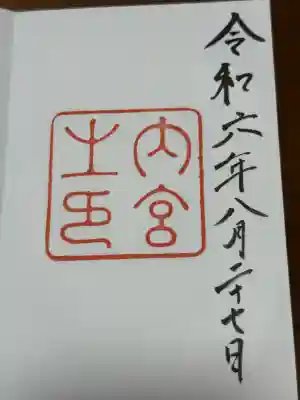 令和六年八月二十七日
内宮
之印